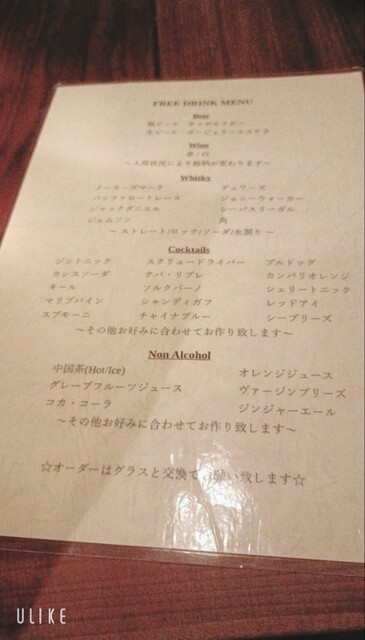 FREE DRINK MENU
Beer
瓶ビール サッポロラガー
生ビール ガージェリーエステラ
Wine
赤・白
~入荷状況により銘柄が変わります~
Whisky
メーカーズマーク デュワーズ
バッファロートレース ジョニーウォーカー
ジャックダニエル シーバスリーガル
ジェムソン 角
~ ストレート/ロック/ソーダ/水割り ~
Cocktails
ジントニック スクリュードライバー ブルドッグ
カシスソーダ クバ・リブレ カンパリオレンジ
キール ソルクバーノ シェリートニック
マリブパイン シャンディガフ レッドアイ
スプモーニ チャイナブルー シーブリーズ
~その他お好みに合わせてお作り致します~
Non Alcohol
中国茶(Hot/Ice) オレンジジュース
グレープフルーツジュース ヴァージンブリーズ
コカ・コーラ ジンジャーエール
~その他お好みに合わせてお作り致します~
☆オーダーはグラスと交換でお願い致します☆
ULIKE